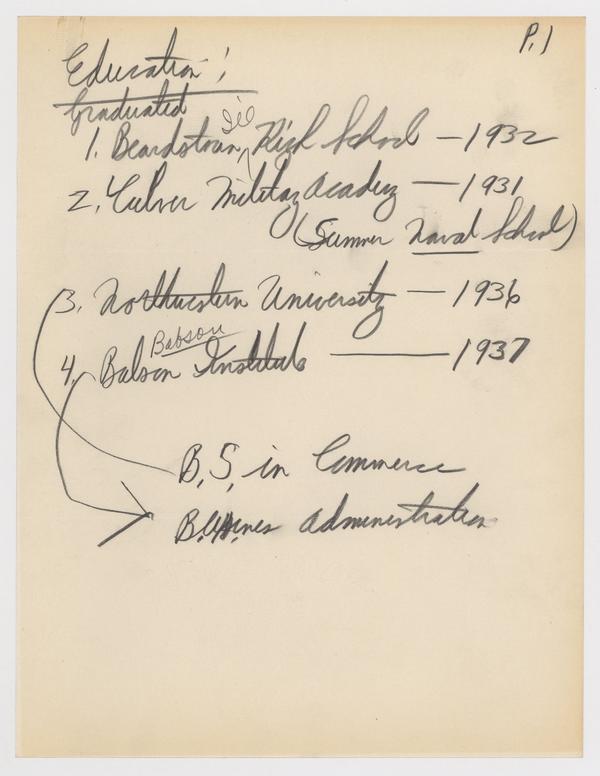 P. 1
Education:
Graduated
Ill
1. Beardstown, High School — 1932
2. Culver Military Academy — 1931
(Summer Naval School)
3. Northwestern University — 1936
Babson
4. Babson Institute — 1937
B.S. in Commerce
Administration